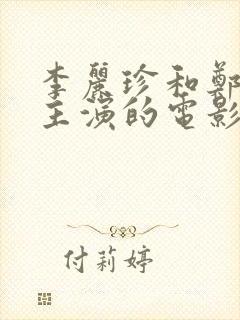 李麗珍和鄭
主演的電影
付莉婷